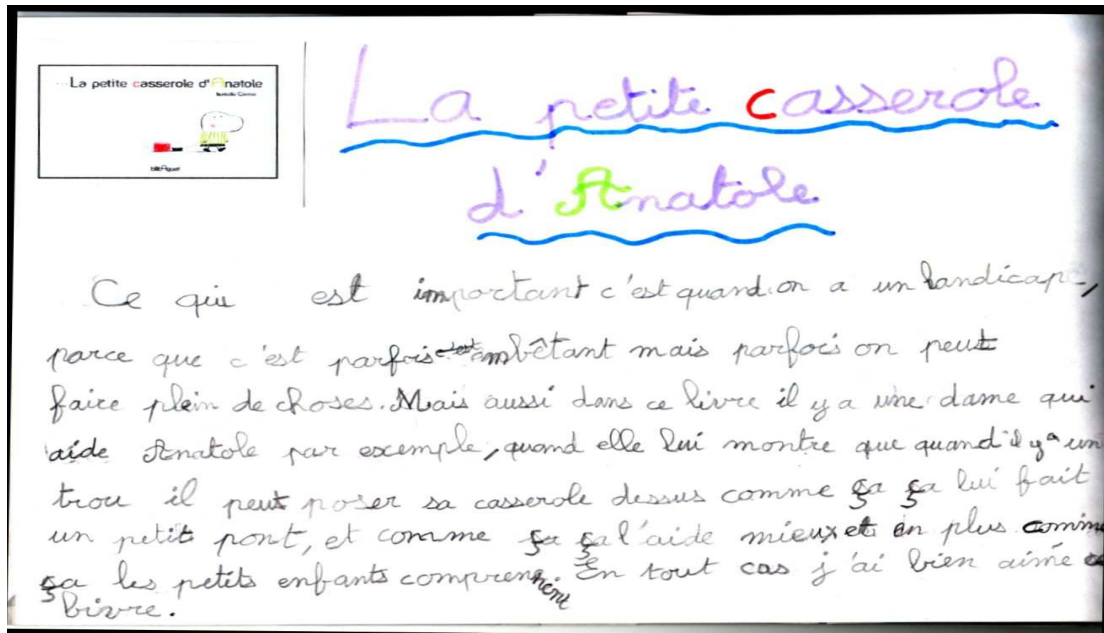 La petite casserole d'Anatole
Isabelle Carrier
bilboquet
La petite casserole
d'Anatole
Ce qui est important c'est quand on a un handicap,
parce que c'est parfois embêtant mais parfois on peut
faire plein de choses. Mais aussi dans ce livre il y a une dame qui
aide Anatole par exemple, quand elle lui montre que quand il y a un
trou il peut poser sa casserole dessus comme ça ça lui fait
un petit pont, et comme ça ça l'aide mieux et en plus comme
ça les petits enfants comprennent. En tout cas j'ai bien aimé ce
livre.